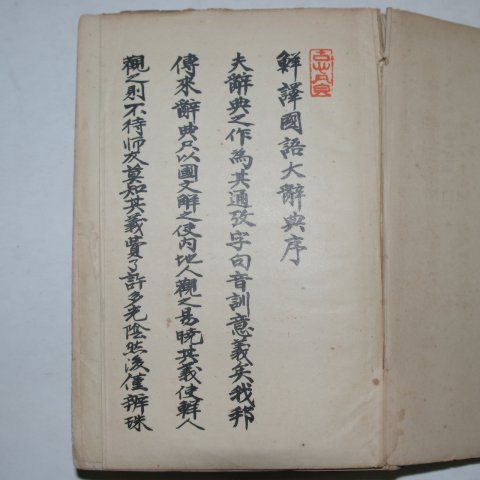 鮮譯國語大辭典序
夫辭典之作為其通攷字句音訓意義矣我邦
傳來辭典只以國文解之使內地人觀之易曉其義使鮮人
觀之則不待師友莫知其義費了許多光陰然後僅辨珠